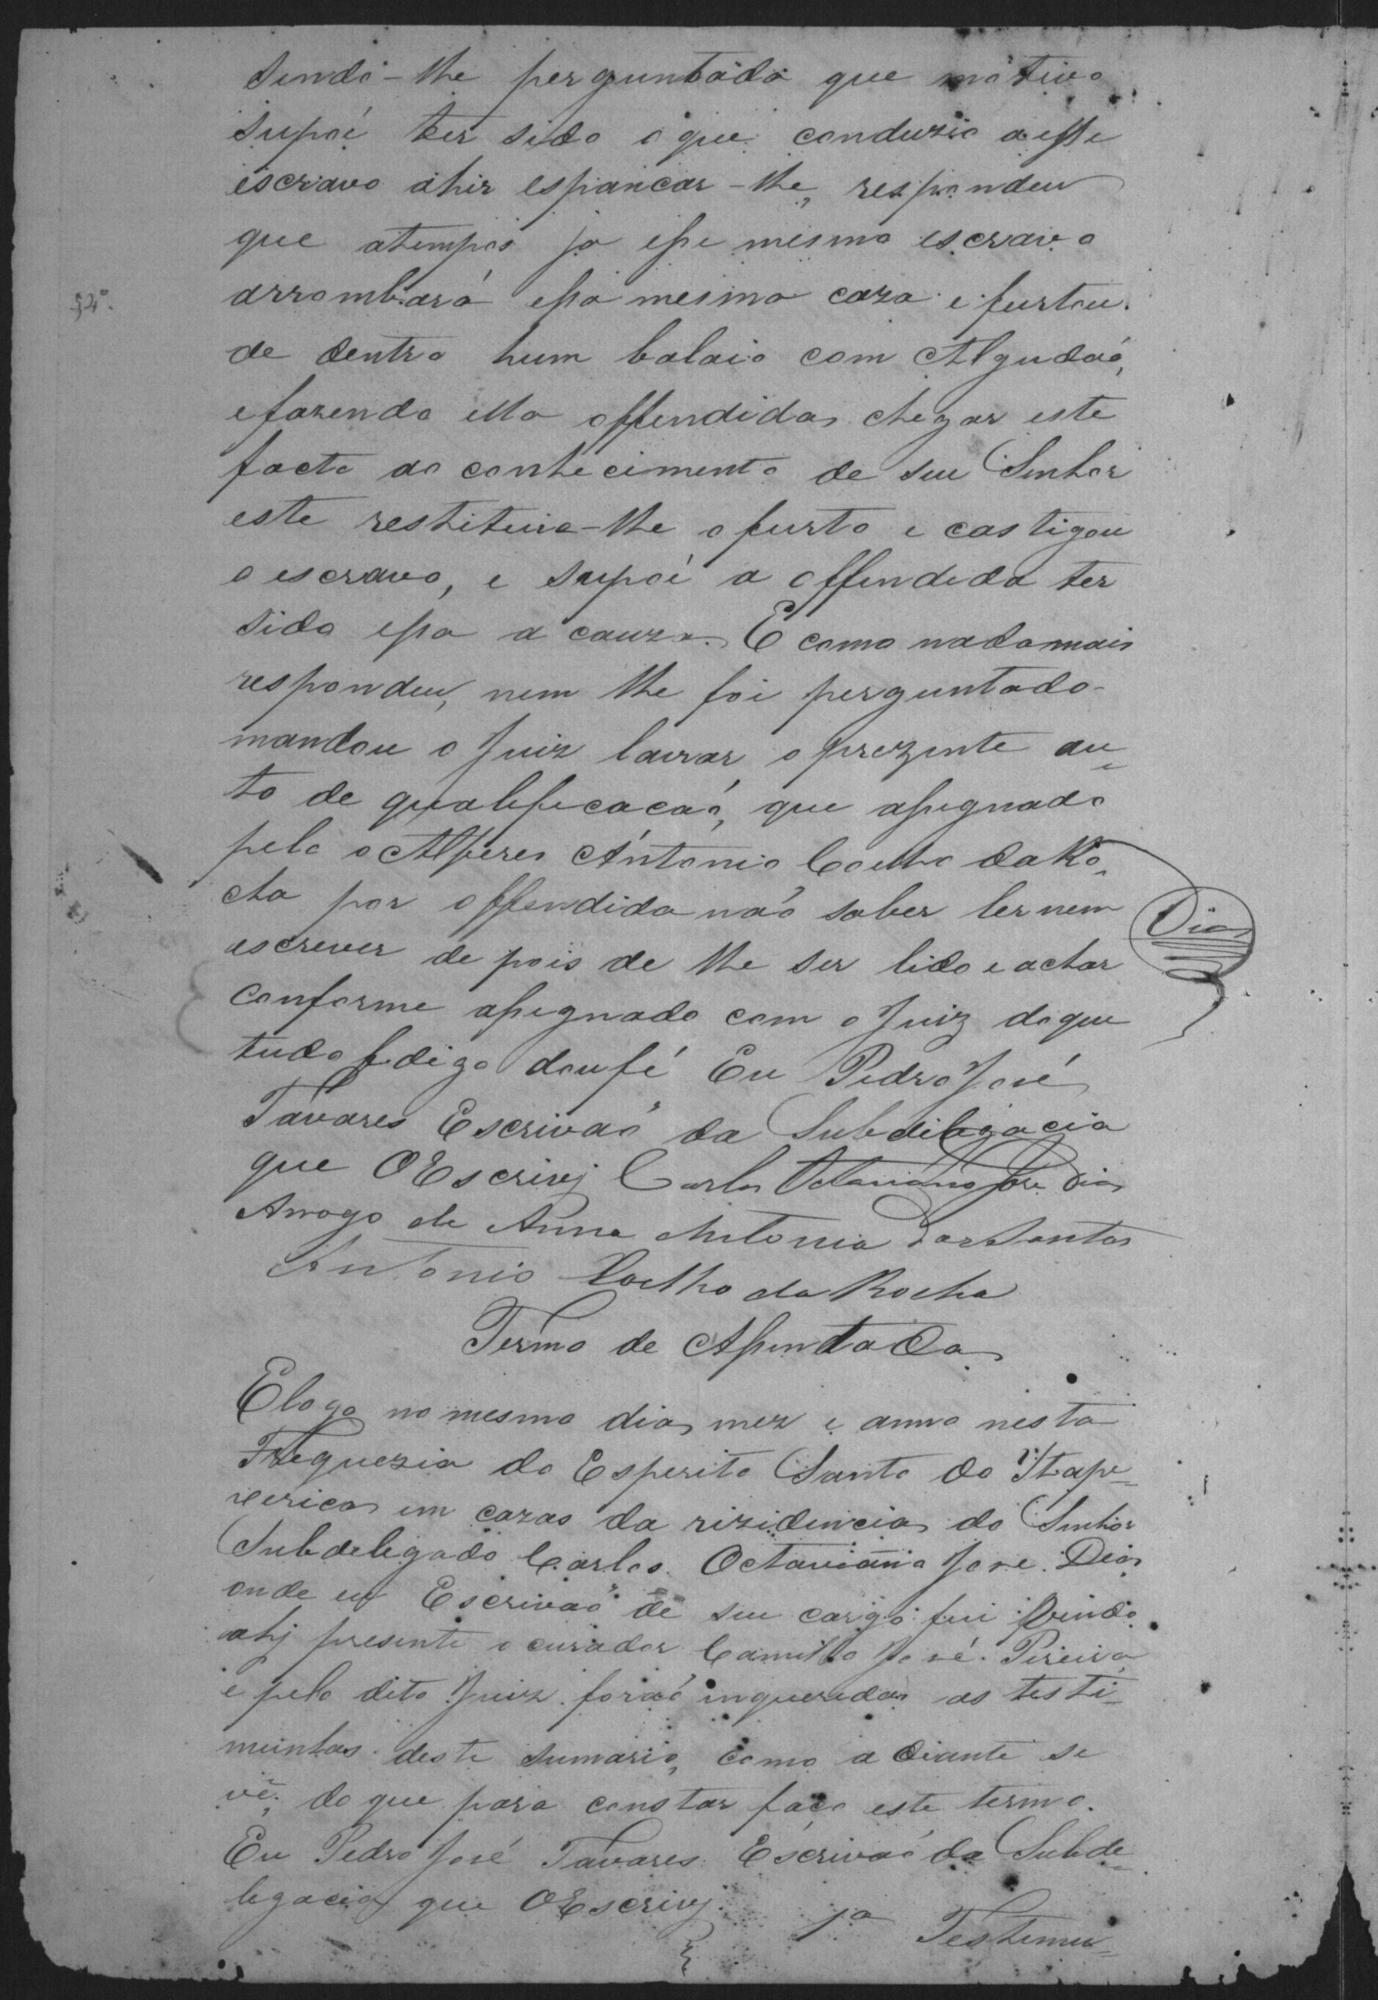 sendo-lhe perguntado que motivo
supoi ter sido o que conduzio a esse
escravo ahir espancar-lhe, respondeu
que atempos ja esse mesmo escravo
arrombará essa mesma caza e furtou
de dentro hum balaio com Algudaó,
e fazendo ella offendida chegar este
facto ao conhecimento de seu Senhor
este restituio-lhe o furto e castigou
o escravo, e supoi a offendida ter
sido essa a cauza. E como nada mais
respondeu, nem lhe foi perguntado
mandou o Juiz lavrar o prezente au-
to de qualificacaó, que assignado
pelo o Alferes Antonio Coelho da Ro-
cha por offendida naó saber ler nem
escrever depois de lhe ser lido e achar
Dias
conforme assignado com o Juiz do que
tudo digo dou fé Eu Pedro José
Tavares Escrivaó da Subdelegacia
que OEscrivj Carlos Octaviano José Dias
Arrogo de Anna Antonia dos Santos
Antonio Coelho da Rocha
Termo de Assentada
E logo no mesmo dia, mez e anno nesta
Freguezia do Esperito Santo do Itape-
cerica em cazas da rizidencia do Senhor
Subdelegado Carlos Octaviano José Dias
onde eu Escrivaó de seu cargo fui vindo
ahj presente o curador Camillo José Pireira
e pelo dito Juiz foraó inqueridas as testi-
muinhas deste sumario, como adiante se
vê, do que para constar faço este termo.
Eu Pedro José Tavares Escrivaó da Subde-
legacia que OEscrivj.
1ª Testemu-